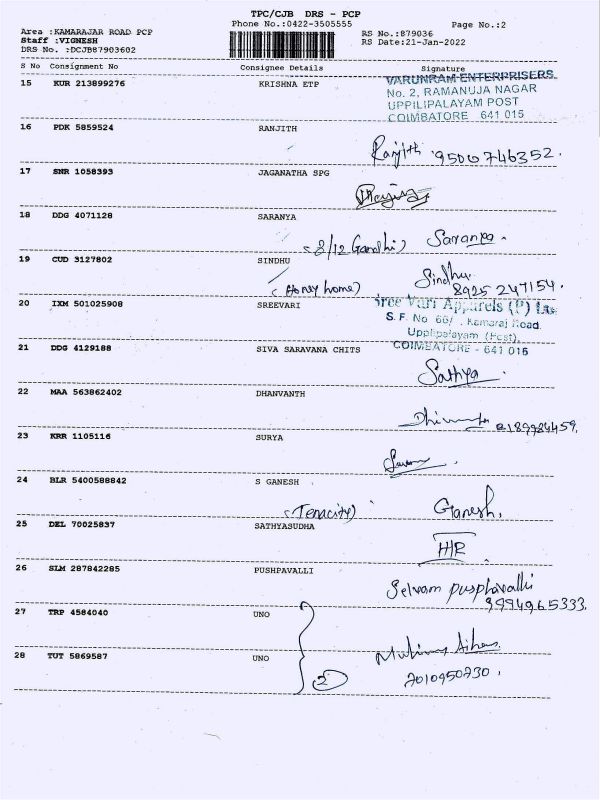 TPC/CJB DRS - PCP
Phone No.:0422-3505555
Page No.:2
Area :KAMARAJAR ROAD PCP
RS No.:879036
Staff :VIGNESH
RS Date:21-Jan-2022
DRS No. :DCJB87903602
S No Consignment No Consignee Details Signature
15 KUR 213899276 KRISHNA ETP
VARUNRAM ENTERPRISERS
No. 2, RAMANUJA NAGAR
UPPILIPALAYAM POST
COIMBATORE 641 015
16 PDK 5859524 RANJITH
Ranjith 9500746352.
17 SNR 1058393 JAGANATHA SPG
18 DDG 4071128 SARANYA
(8/12 Gandhi) Saranya.
19 CUD 3127802 SINDHU
(Honey home) Sindhu
8925 247154.
20 IXM 501025908 SREEVARI
Sree Vari Apparels (P) Ltd.
S. F. No 66/ , Kamaraj Road,
Upplipalayam (Post),
COIMBATORE - 641 015
21 DDG 4129188 SIVA SARAVANA CHITS
Sathya
22 MAA 563862402 DHANVANTH
23 KRR 1105116 SURYA
24 BLR 5400588842 S GANESH
(Tenacity) Ganesh.
25 DEL 70025837 SATHYASUDHA
HR
26 SLM 287842285 PUSHPAVALLI
Selvam pusphavalli
9994965333.
27 TRP 4584040 UNO
28 TUT 5869587 UNO
2
7010950730.